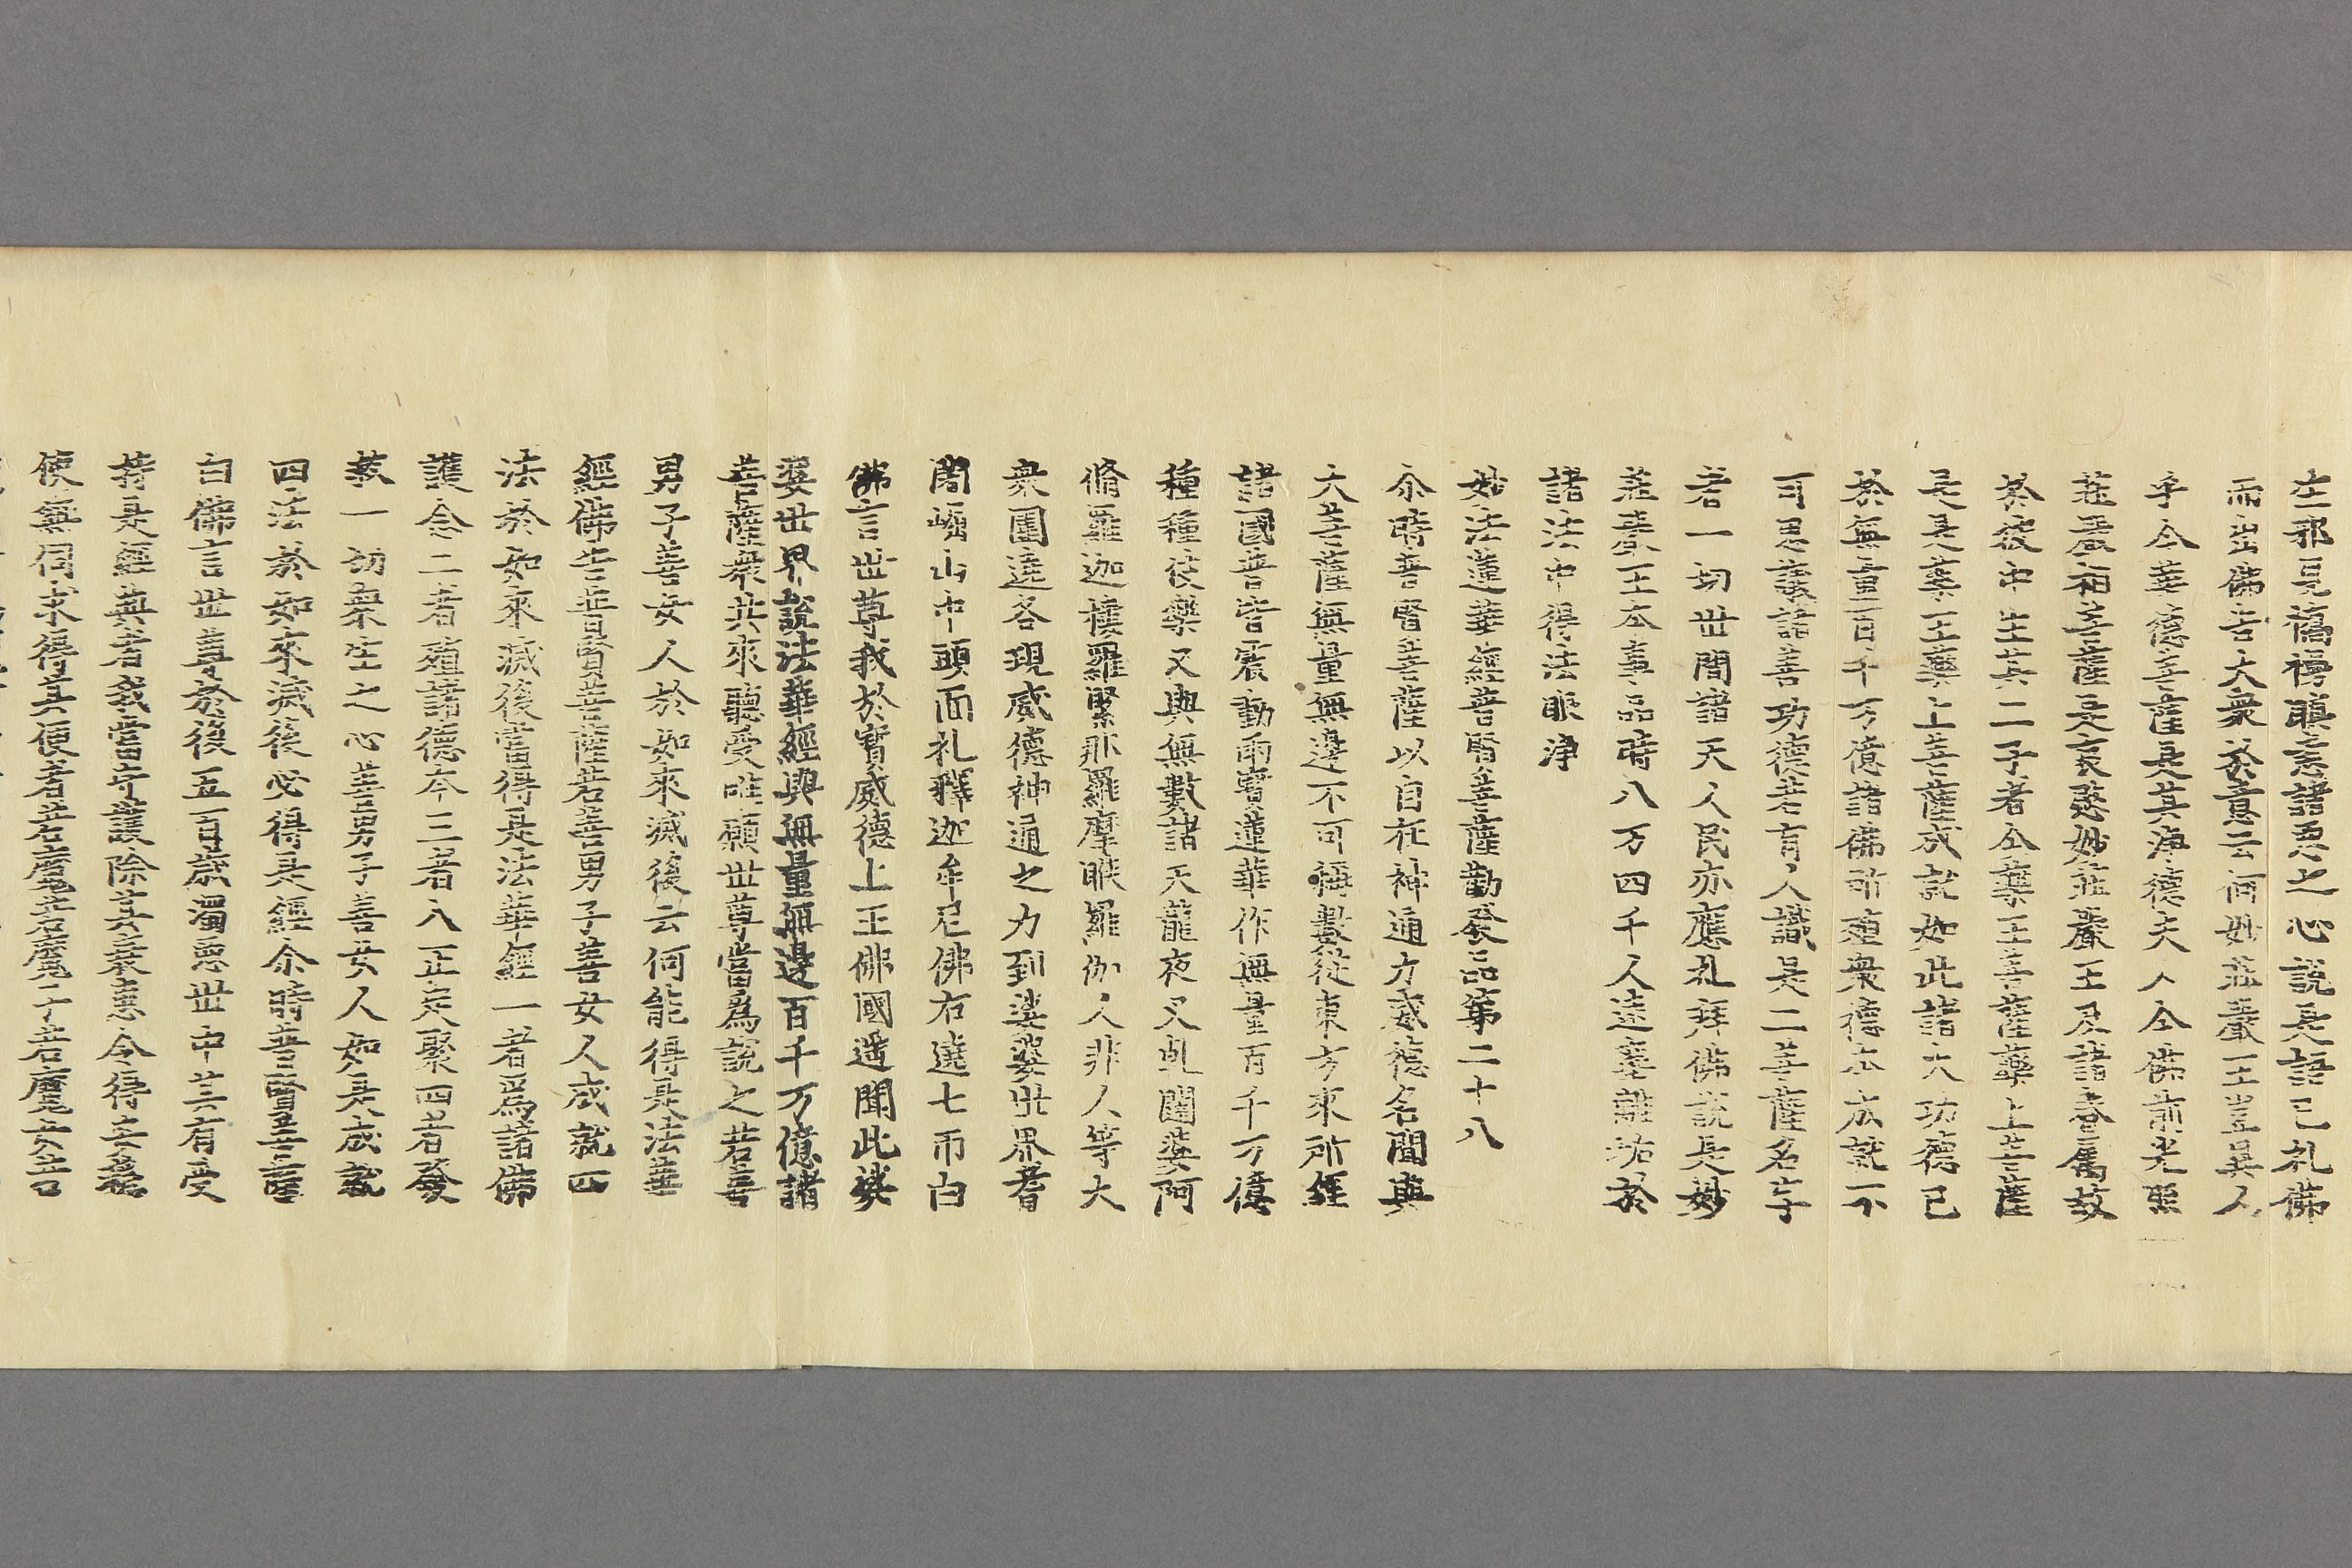 生邪見憍慢瞋恚諸惡之心說是語已礼佛
而出佛告大衆於意云何妙莊嚴王豈異人
乎今華德菩薩是其淨德夫人今佛前光照
莊嚴相菩薩是哀愍妙莊嚴王及諸眷屬故
於彼中生其二子者今藥王菩薩藥上菩薩
是是藥王藥上菩薩成就如此諸大功德已
於無量百千万億諸佛所殖衆德本成就不
可思議諸善功德若有人識是二菩薩名字
者一切世間諸天人民亦應礼拜佛說是妙
莊嚴王本事品時八万四千人遠塵離垢於
諸法中得法眼淨
妙法蓮華經普賢菩薩勸發品第二十八
尒時普賢菩薩以自在神通力威德名聞與
大菩薩無量無邊不可稱數從東方來所經
諸國普皆震動雨寶蓮華作無量百千万億
種種伎樂又與無數諸天龍夜叉乹闥婆阿
脩羅迦樓羅緊那羅摩睺羅伽人非人等大
衆圍遶各現威德神通之力到娑婆世界耆
闍崛山中頭面礼釋迦牟尼佛右遶七帀白
佛言世尊我於寶威德上王佛國遥聞此娑
婆世界說法華經與無量無邊百千万億諸
菩薩衆共來聽受唯願世尊當爲說之若善
男子善女人於如來滅後云何能得是法華
經佛告普賢菩薩若善男子善女人成就四
法於如來滅後當得是法華經一者爲諸佛
護念二者殖諸德本三者入正定聚四者發
救一切衆生之心善男子善女人如是成就
四法於如來滅後必得是經尒時普賢菩薩
白佛言世尊於後五百歳濁惡世中其有受
持是經典者我當守護除其衰患令得安隱
使無伺求得其便者若魔若魔子若魔女若